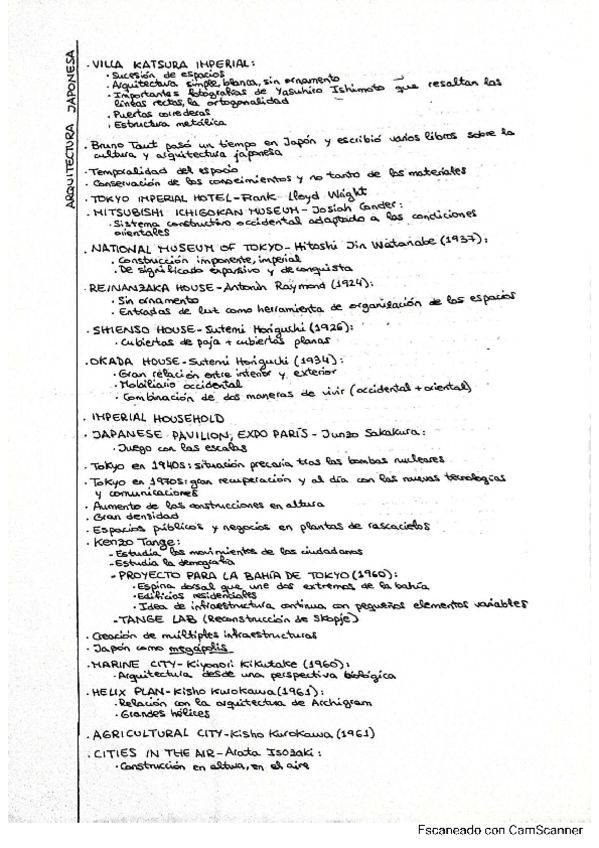 ARQUITECTURA JAPONESA
· VILLA KATSURA IMPERIAL:
· Sucesión de espacios
· Arquitectura simple, blanca, sin ornamento
· Importantes fotografías de Yasuhiro Ishimoto que resaltan las
líneas rectas, la ortogonalidad
· Puertas correderas
· Estructura metálica
· Bruno Taut pasó un tiempo en Japón y escribió varios libros sobre la
cultura y arquitectura japonesa
· Temporalidad del espacio
· Conservación de los conocimientos y no tanto de los materiales
· TOKYO IMPERIAL HOTEL - Frank Lloyd Wright
· MITSUBISHI ICHIGOKAN MUSEUM - Josiah Conder:
· Sistema constructivo occidental adaptado a las condiciones
orientales
· NATIONAL MUSEUM OF TOKYO - Hitoshi Jin Watanabe (1937):
· Construcción imponente, imperial
· De significado expansivo y de conquista
· REINANZAKA HOUSE - Antonin Raymond (1924):
· Sin ornamento
· Entradas de luz como herramienta de organización de los espacios
· SHIENSO HOUSE - Sutemi Horiguchi (1926):
· Cubiertas de paja + cubiertas planas
· OKADA HOUSE - Sutemi Horiguchi (1934):
· Gran relación entre interior y exterior
· Mobiliario occidental
· Combinación de dos maneras de vivir (occidental + oriental)
· IMPERIAL HOUSEHOLD
· JAPANESE PAVILION, EXPO PARÍS - Junzo Sakakura:
· Juego con las escalas
· Tokyo en 1940s: situación precaria tras las bombas nucleares
· Tokyo en 1970s: gran recuperación y al día con las nuevas tecnologías
y comunicaciones
· Aumento de las construcciones en altura
· Gran densidad
· Espacios públicos y negocios en plantas de rascacielos
· Kenzo Tange:
- Estudia los movimientos de los ciudadanos
- Estudia la demografía
- PROYECTO PARA LA BAHÍA DE TOKYO (1960):
· Espina dorsal que une dos extremos de la bahía
· Edificios residenciales
· Idea de infraestructura continua con pequeños elementos variables
- TANGE LAB (Reconstrucción de Skopje)
· Creación de múltiples infraestructuras
· Japón como megápolis
· MARINE CITY - Kiyonori Kikutake (1960):
· Arquitectura desde una perspectiva biológica
· HELIX PLAN - Kisho Kurokawa (1961):
· Relación con la arquitectura de Archigram
· Grandes hélices
· AGRICULTURAL CITY - Kisho Kurokawa (1961)
· CITIES IN THE AIR - Arata Isozaki:
· Construcción en altura, en el aire
Escaneado con CamScanner